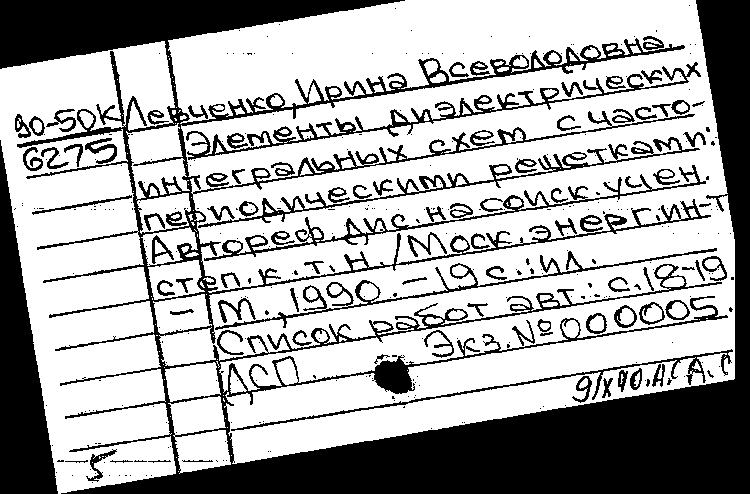 90-50К Левченко, Ирина Всеволодовна.
6275 Элементы диэлектрических
интегральных схем с часто-
периодическими решетками:
Автореф. дис. на соиск. учен.
степ. к.т.н. / Моск. энерг. ин-т
– М., 1990. – 19 с.: ил.
Список работ авт.: с. 18-19.
ДСП. Экз. № 000005.
9/X 90. А.
5